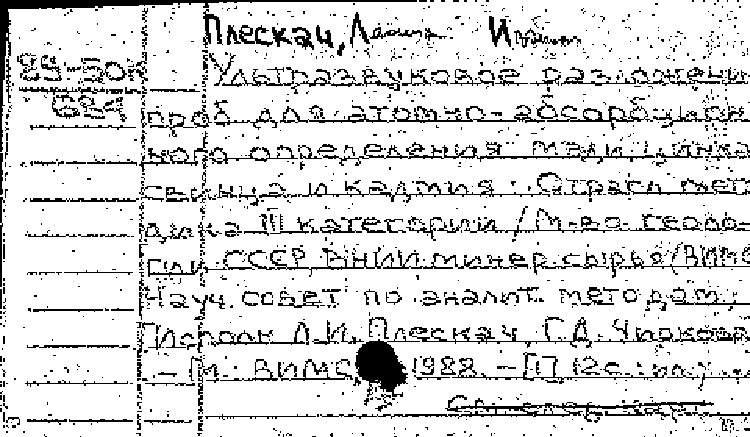 Плескач,
89-30к Ультразвуковое разложени
проб для атомно-абсорбцион
ного определения меди, цинка
свинца и кадмия: Отрасл. мето
дика III категории / М-во геоло-
гии СССР, ВНИИ минер. сырья (ВИМС
Науч. совет по аналит. методам;
Исполн. Л.И. Плескач, Г.Д. Чиркова
- М.: ВИМС, 1988. - [1] 12с.: ил.;
См. след. карт.